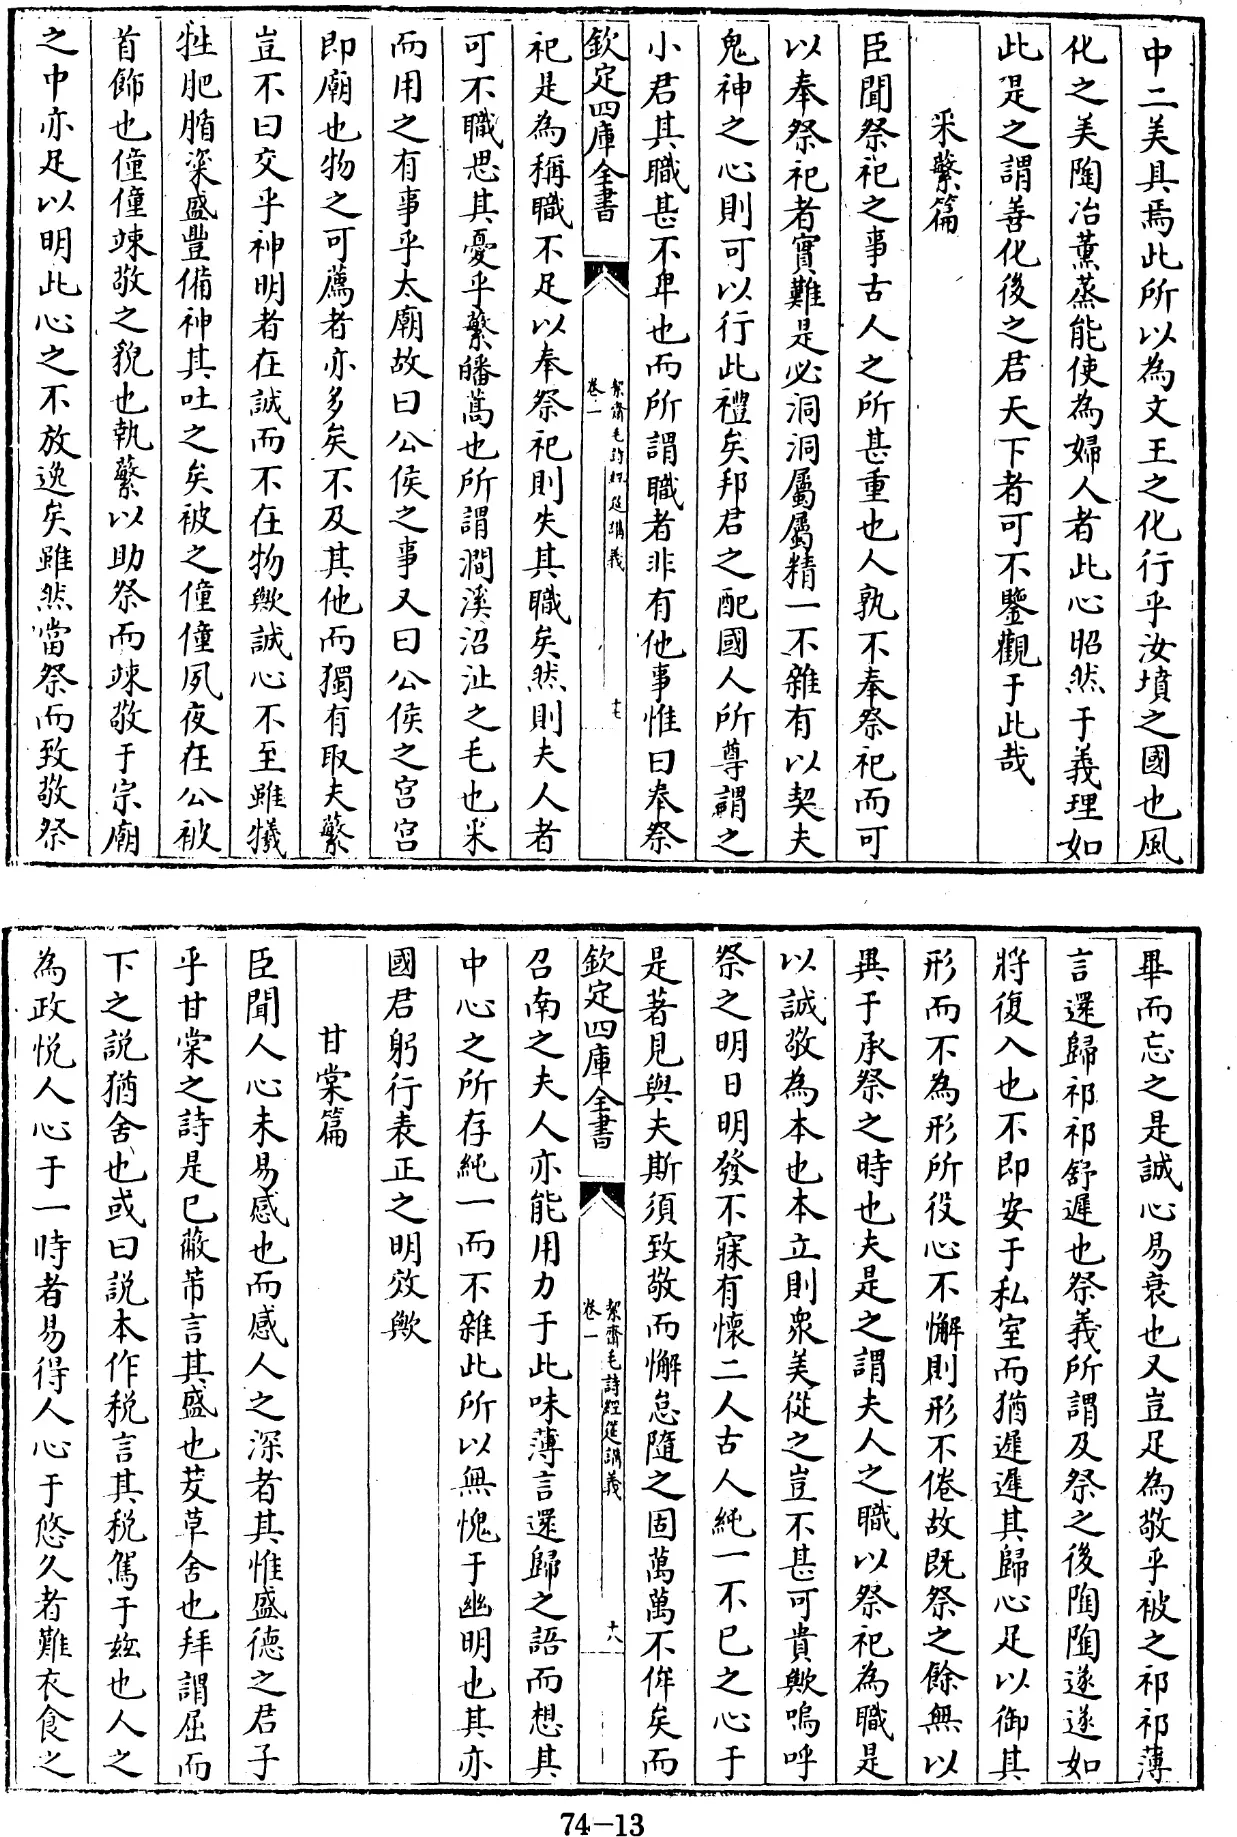 中二美具焉此所以為文王之化行乎汝墳之國也風
化之美陶冶薰蒸能使為婦人者此心昭然于義理如
此是之謂善化後之君天下者可不鑒觀于此哉
采蘩篇
臣聞祭祀之事古人之所甚重也人孰不奉祭祀而可
以奉祭祀者實難是必洞洞屬屬精一不雜有以契夫
鬼神之心則可以行此禮矣邦君之配國人所尊謂之
小君其職甚不卑也而所謂職者非有他事惟曰奉祭
欽定四庫全書
絜齋毛詩經筵講義
卷一
十七
祀是為稱職不足以奉祭祀則失其職矣然則夫人者
可不職思其憂乎蘩皤蒿也所謂澗溪沼沚之毛也采
而用之有事乎太廟故曰公侯之事又曰公侯之宮宮
即廟也物之可薦者亦多矣不及其他而獨有取夫蘩
豈不曰交乎神明者在誠而不在物歟誠心不至雖犧
牲肥腯粢盛豐備神其吐之矣被之僮僮夙夜在公被
首飾也僮僮竦敬之貌也執蘩以助祭而竦敬于宗廟
之中亦足以明此心之不放逸矣雖然當祭而致敬祭
畢而忘之是誠心易衰也又豈足為敬乎被之祁祁薄
言還歸祁祁舒遲也祭義所謂及祭之後陶陶遂遂如
將復入也不即安于私室而猶遲遲其歸心足以御其
形而不為形所役心不懈則形不倦故既祭之餘無以
異于承祭之時也夫是之謂夫人之職以祭祀為職是
以誠敬為本也本立則衆美從之豈不甚可貴歟嗚呼
祭之明日明發不寐有懷二人古人純一不已之心于
是著見與夫斯須致敬而懈怠隨之固萬萬不侔矣而
欽定四庫全書
絜齋毛詩經筵講義
卷一
十八
召南之夫人亦能用力于此味薄言還歸之語而想其
中心之所存純一而不雜此所以無愧于幽明也其亦
國君躬行表正之明效歟
甘棠篇
臣聞人心未易感也而感人之深者其惟盛德之君子
乎甘棠之詩是已蔽芾言其盛也茇草舍也拜謂屈而
下之說猶舍也或曰説本作税言其税駕于玆也人之
為政悦人心于一時者易得人心于悠久者難衣食之
74-13